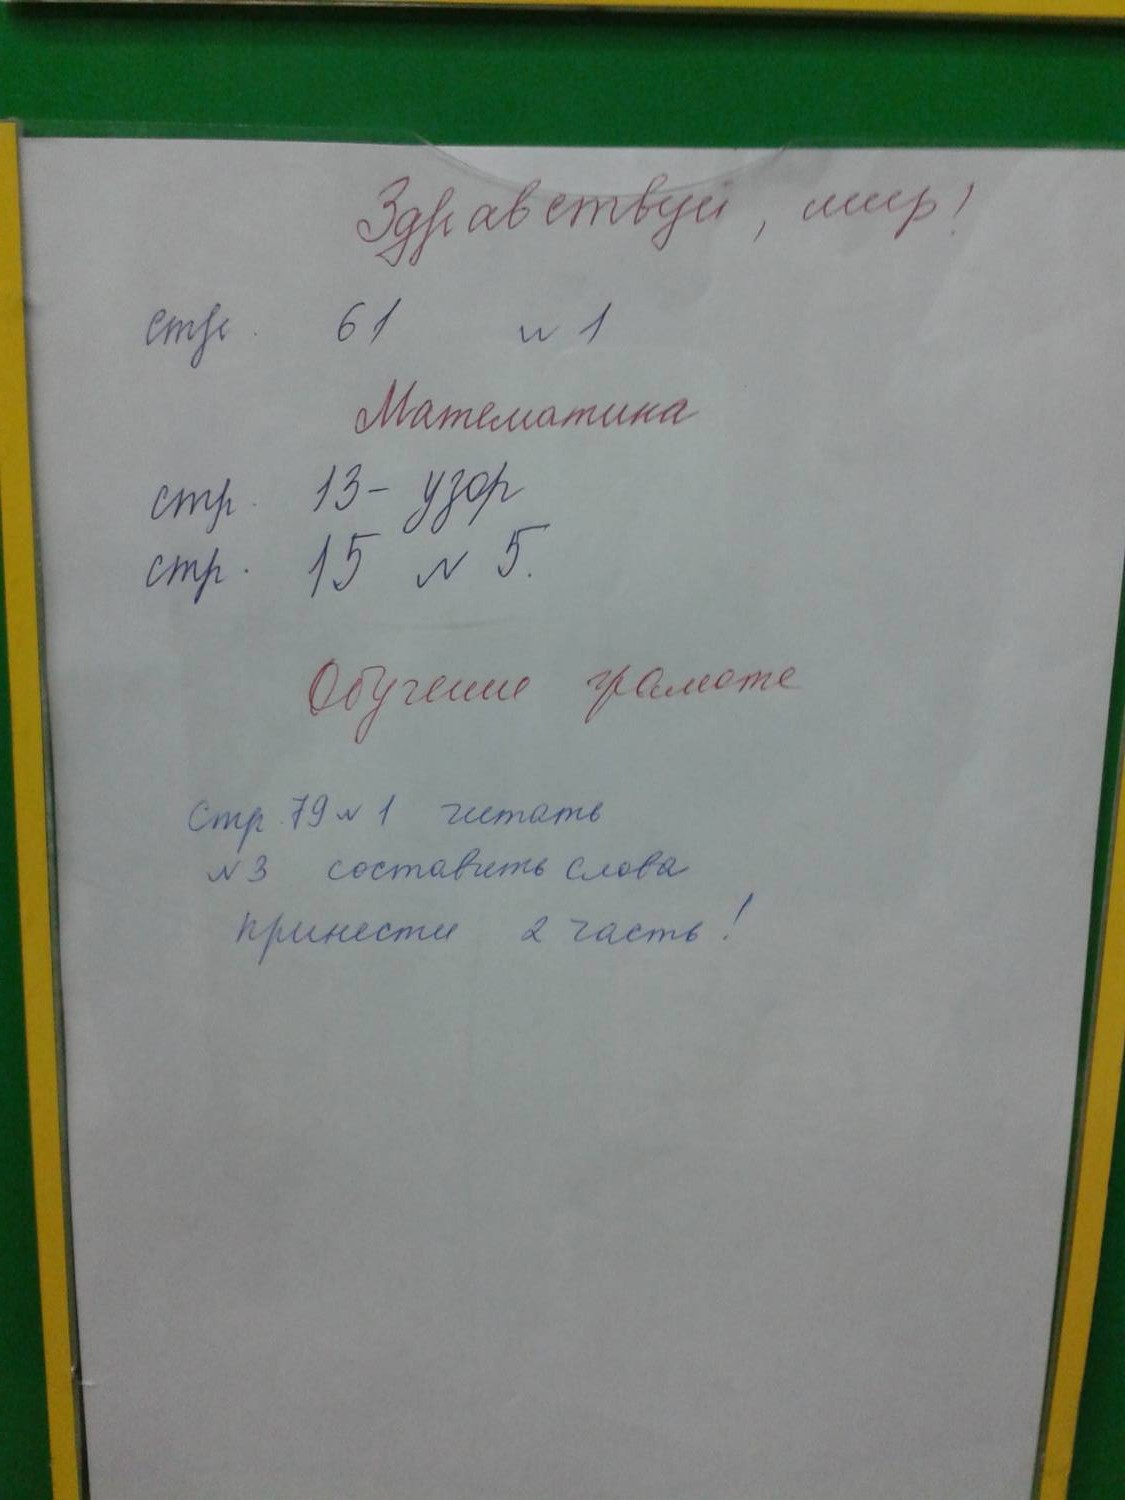 Здравствуй, мир!
стр. 61 № 1
Математика
стр. 13- узор
стр. 15 № 5.
Обучение грамоте
Стр. 79 № 1 читать
№ 3 составить слова
принести 2 часть!